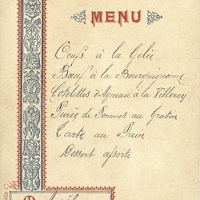 MENU
Oeufs à la Gelée
Bœuf à la Bourguignonne
Cotelettes d'Agneau à la Villeroy
Purée de Pommes au Gratin
Tarte au
Dessert assorti